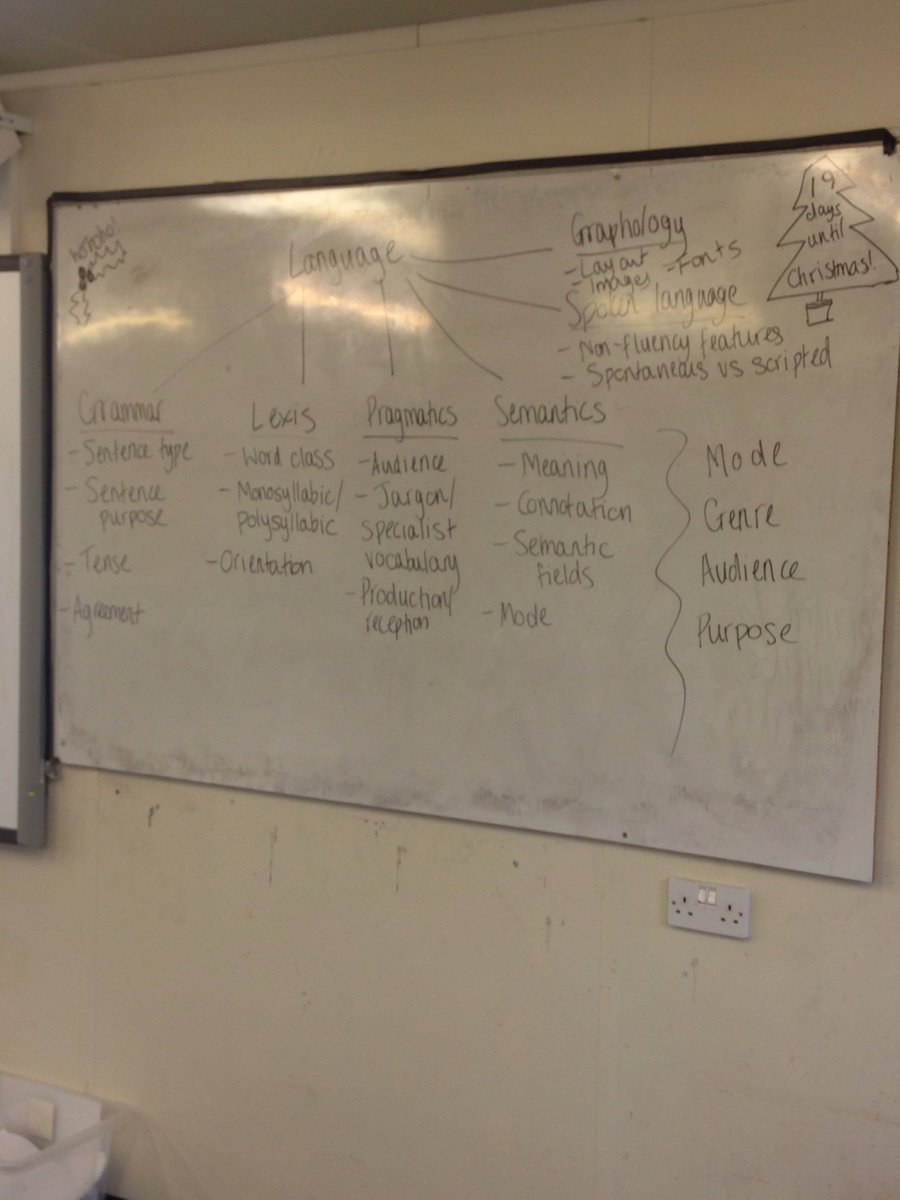 ho ho ho!
Language
Graphology
- Layout
- Images - Fonts
Spoken language
- Non-fluency features
- Spontaneous vs scripted
19
days
until
Christmas!
Grammar
- Sentence type
- Sentence
purpose
- Tense
- Agreement
Lexis
- Word class
- Monosyllabic/
polysyllabic
- Orientation
Pragmatics
- Audience
- Jargon/
specialist
vocabulary
- Production/
reception
Semantics
- Meaning
- Connotation
- Semantic
fields
- Mode
Mode
Genre
Audience
Purpose